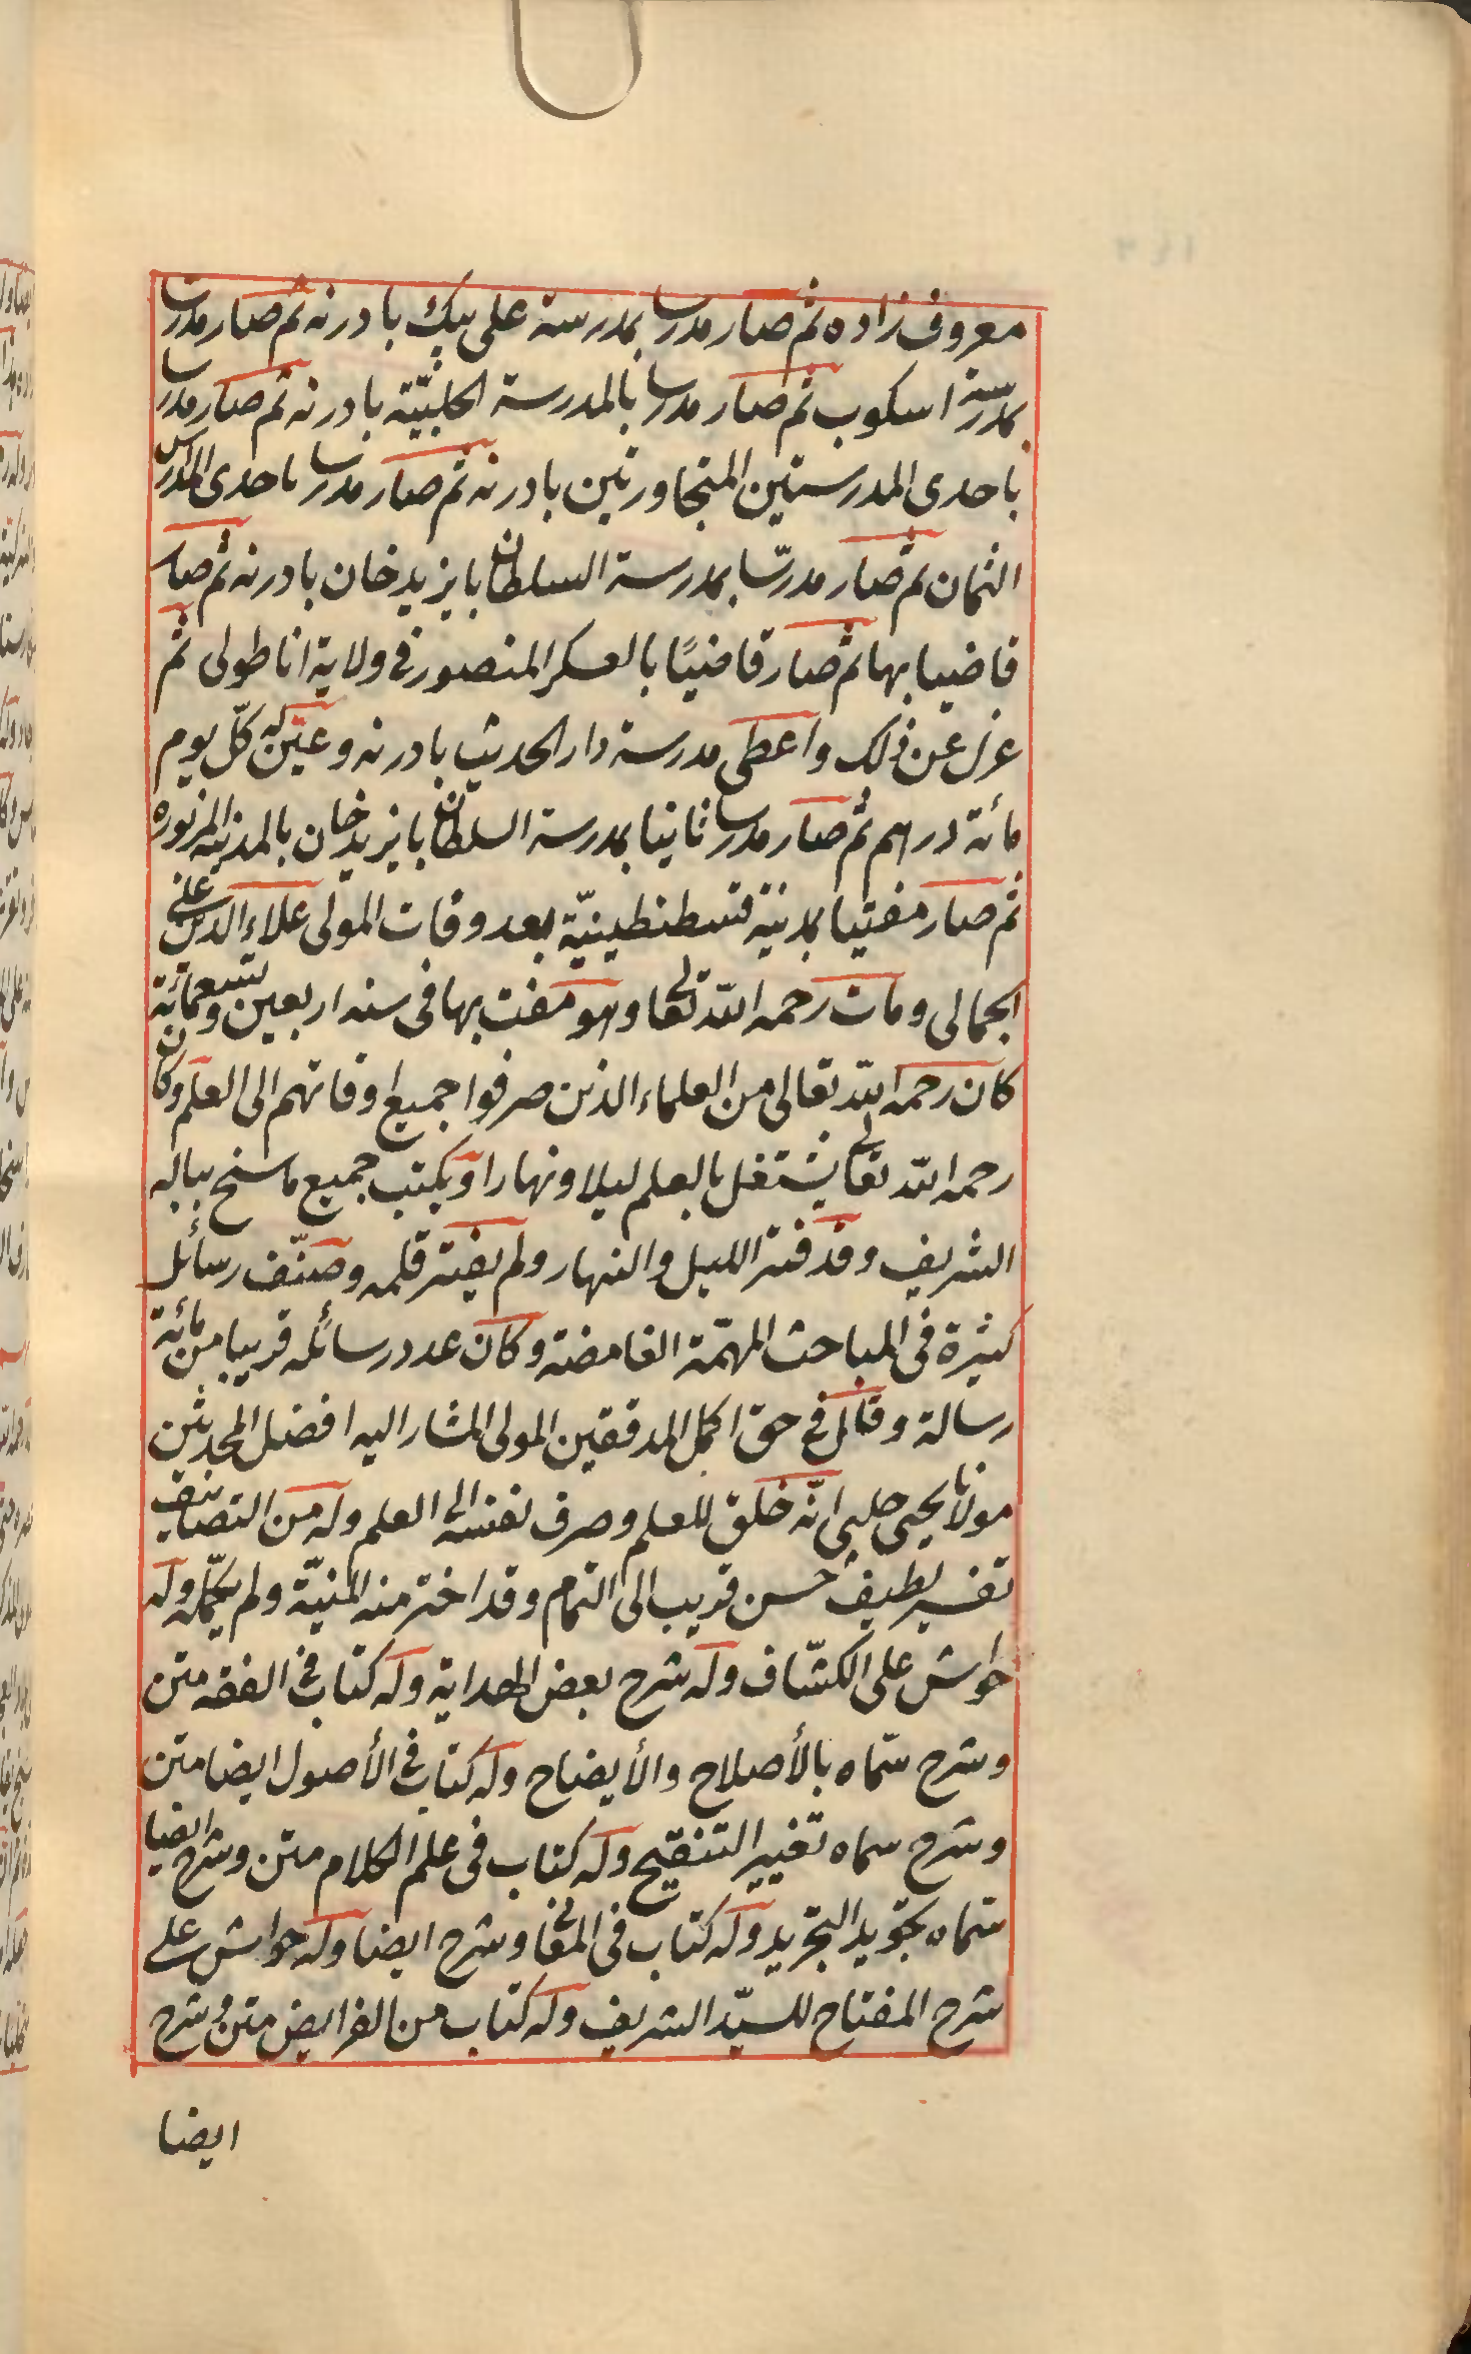 معروف زاده ثم صار مدرسا بمدرسة على بيك بادرنه ثم صار مدرسا
بمدرسة اسكوب ثم صار مدرسا بالمدرسة الحلبيّة بادرنه ثم صار مدرسا
باحدى المدرستين المتجاورتين بادرنه ثم صار مدرسا باحدى المدارس
الثمان ثم صار مدرّسا بمدرسة السلطان بايزيد خان بادرنه ثم صار
قاضيا بها ثم صار قاضيًا بالعسكر المنصور في ولاية اناطولى ثم
عزل عن ذلك واعطى مدرسة دار الحديث بادرنه وعيّن له كلّ يوم
مائة درهم ثم صار مدرسا ثانيا بمدرسة السلطان بايزيد خان بالمدينة المزبوره
ثم صار مفتيا بمدينة قسطنطينيّة بعد وفات المولى علاء الدين على
الجمالى ومات رحمه الله تعالى وهو مفت بها فى سنه اربعين وتسعمائة
كان رحمه الله تعالى من العلماء الذين صرفوا جميع اوقاتهم الى العلم وكان
رحمه الله تعالى يشتغل بالعلم ليلا ونهارا ويكتب جميع ما سنح بباله
الشريف وقد فتر الليل والنهار ولم يفتر قلمه وصنّف رسائل
كثيرة فى المباحث المهمّة الغامضة وكان عدد رسائله قريبا من مائة
رسالة وقال في حق اكمل المدققين المولى المشار اليه افضل المحدثين
مولانا يحيى چلبى انّه خلق للعلم وصرف نفسه الى العلم وله من التصانيف
تفسير لطيف حسن قريب الى التمام وقد اخترمنه المنيّة ولم يكمّله وله
حواش على الكشّاف وله شرح بعض الهداية وله كتاب في الفقه متن
وشرح سمّاه بالأصلاح والأيضاح وله كتاب في الأصول ايضا متن
وشرح سماه تغيير التنقيح وله كتاب فى علم الكلام متن وشرح ايضا
سمّاه بتجويد التجريد وله كتاب فى المعانى وشرح ايضا وله حواش على
شرح المفتاح للسيّد الشريف وله كتاب من الفرايض متن وشرح
ايضا